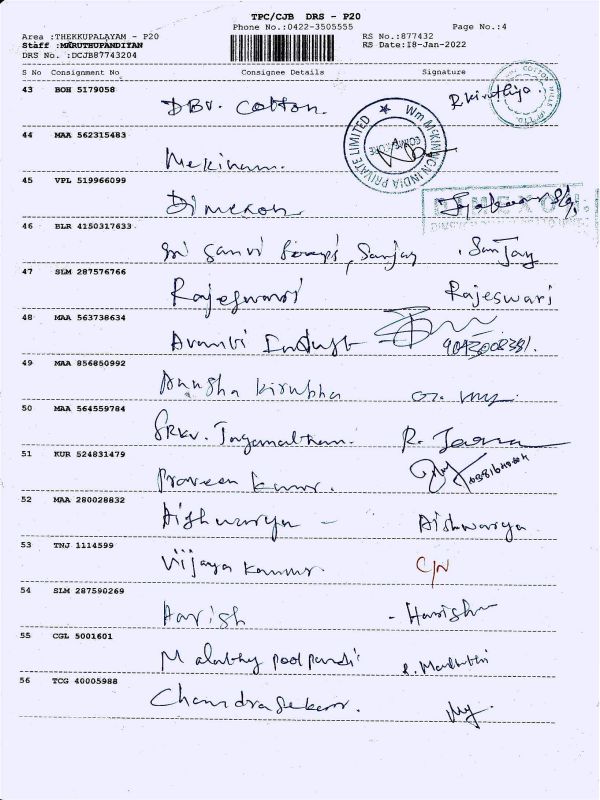 TPC/CJB DRS - P20
Phone No.:0422-3505555 Page No.:4
Area :THEKKUPALAYAM - P20 RS No.:877432
Staff :MARUTHUPANDIYAN RS Date:18-Jan-2022
DRS No. :DCJB87743204
S No Consignment No Consignee Details Signature
43 BOH 5179058 DBV. Cotton. R.kiruthiga.
44 MAA 562315483 Mckinam. Wm McKINNON INDIA PRIVATE LIMITED
45 VPL 519966099 Dimexon
46 BLR 4150317633 Sri Sanvi Sanjay Sanjay
47 SLM 287576766 Rajeswari Rajeswari
48 MAA 563738634 Indust
49 MAA 856850992 Anusha Kirubha
50 MAA 564559784 SRKV.
51 KUR 524831479 Praveen Kumar.
52 MAA 280028832 Aishwarya - Aishwarya
53 TNJ 1114599 Vijaya Kumar. C/N
54 SLM 287590269 Harish - Harish
55 CGL 5001601
56 TCG 40005988 Chandrasekar.